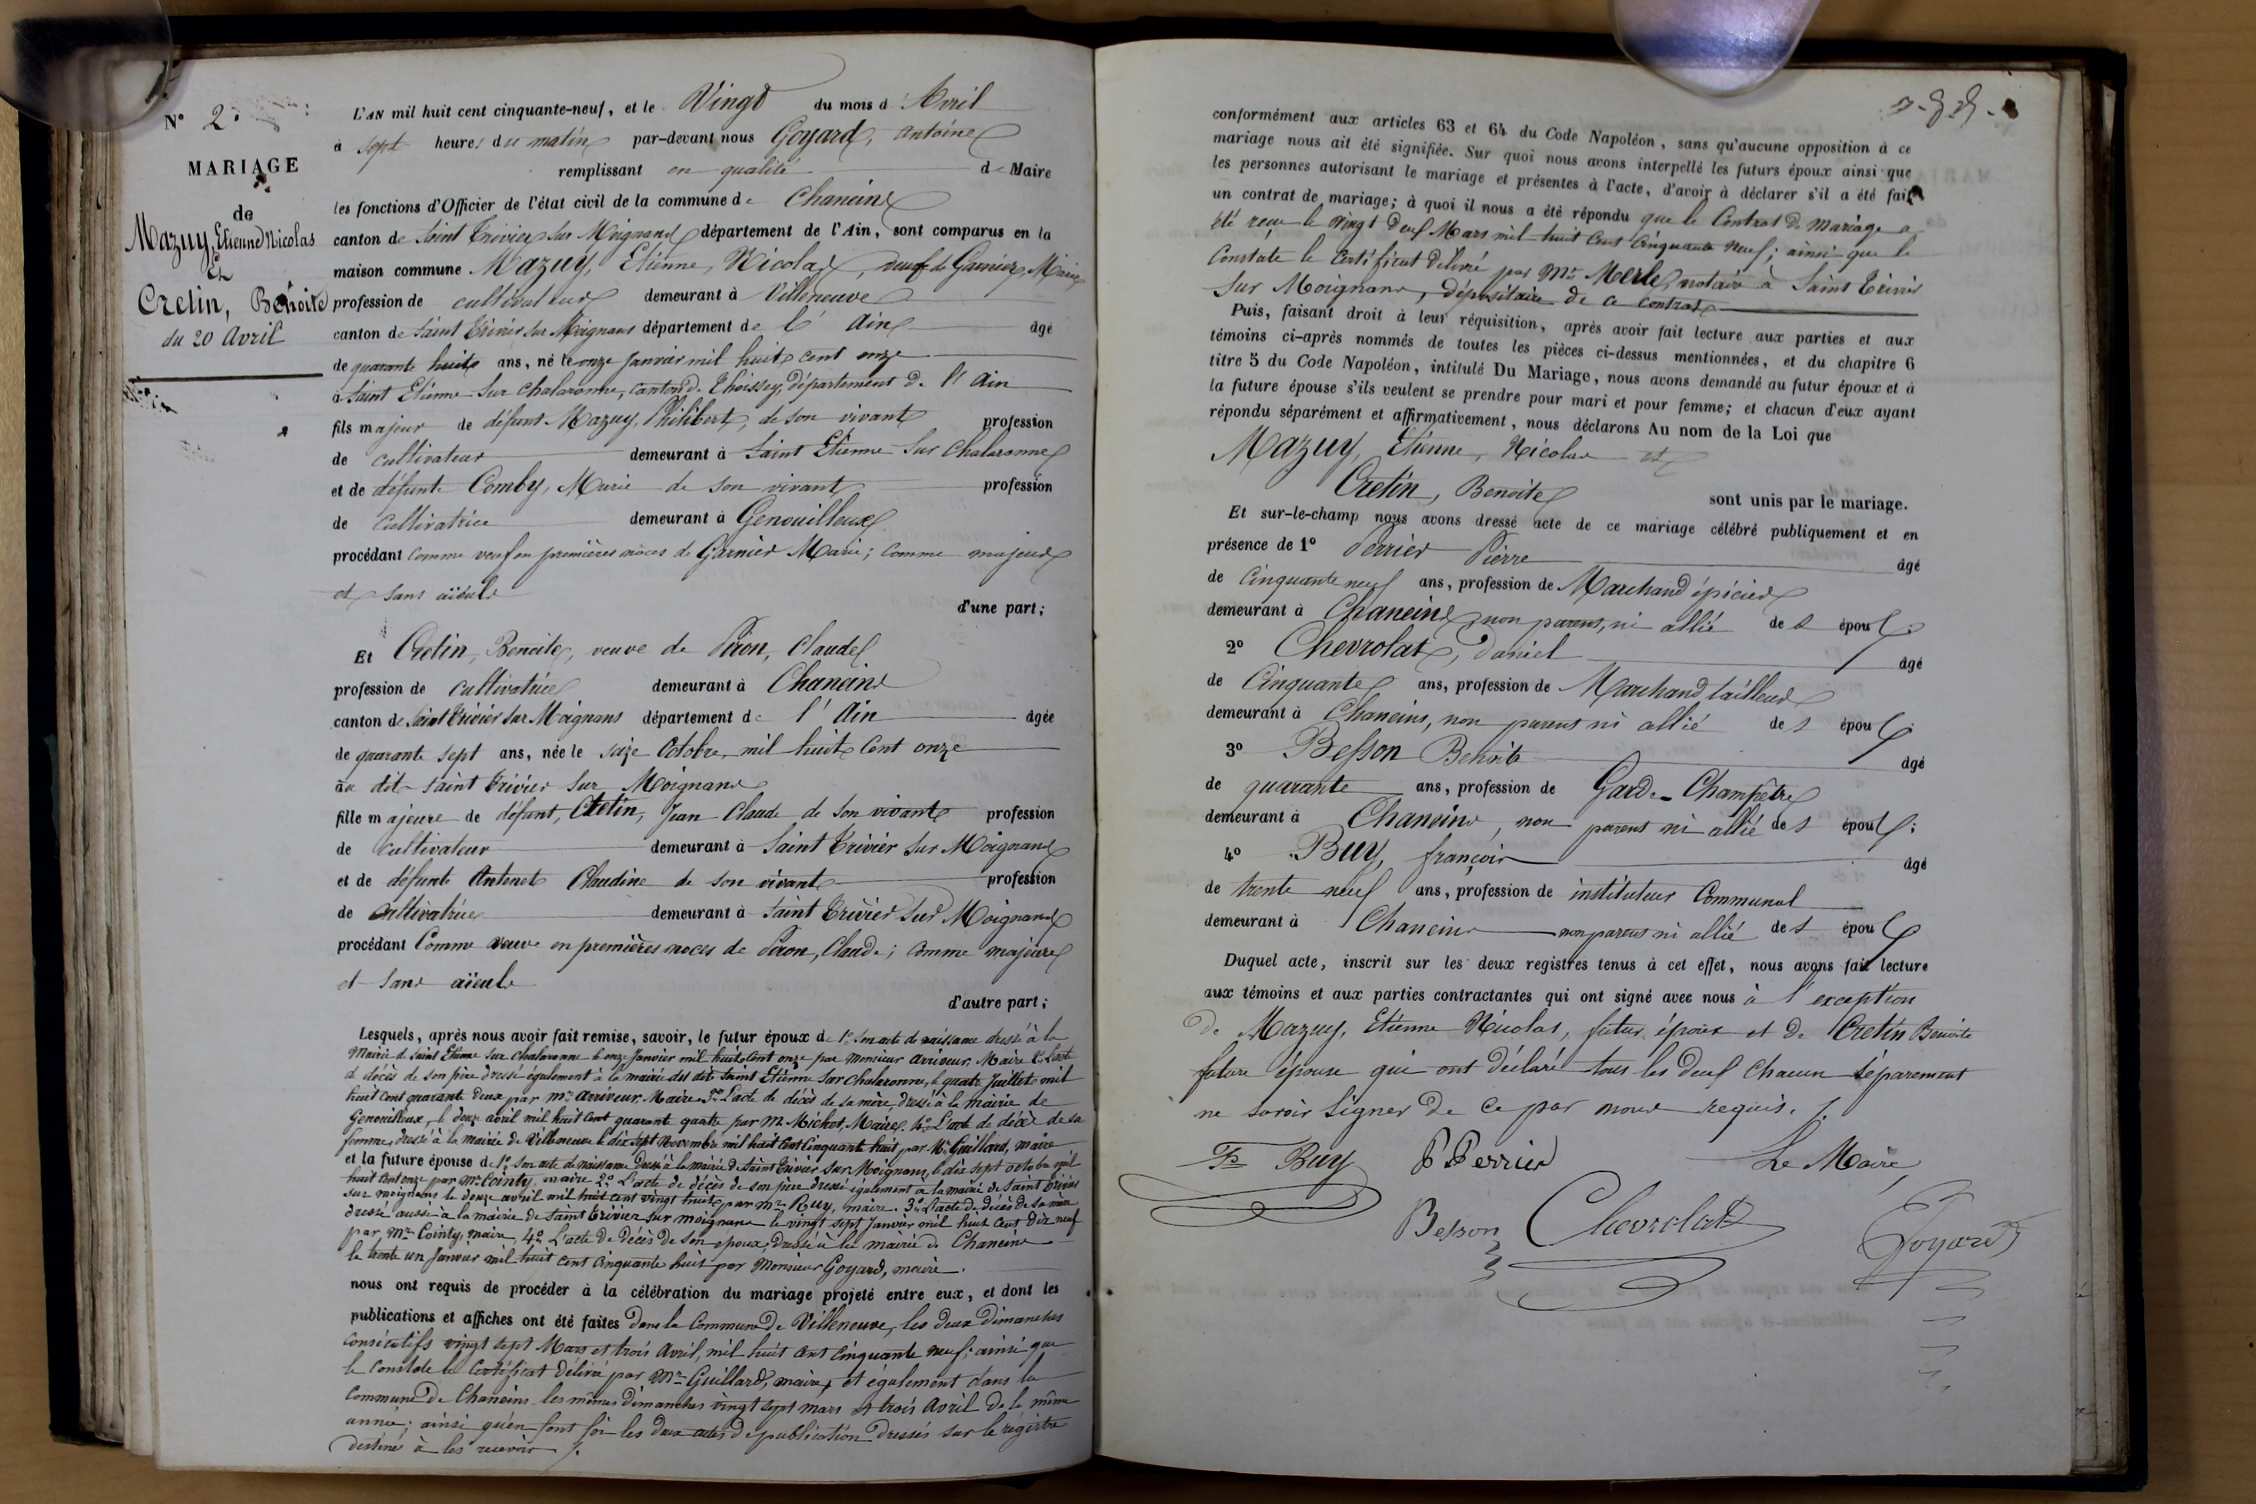 N° 2
MARIAGE
de
Mazuy, Etienne Nicolas
Et
Cretin, Benoite
du 20 Avril
L'AN mil huit cent cinquante-neuf, et le Vingt du mois d'Avril
à sept heures du matin par-devant nous Goyard, Antoine
remplissant en qualité de Maire
les fonctions d'Officier de l'état civil de la commune de Chaneins
canton de Saint Trivier sur Moignans département de l'Ain, sont comparus en la
maison commune Mazuy, Etienne, Nicolas, veuf de Garnier, Marie
profession de cultivateur demeurant à Villeneuve
canton de Saint Trivier sur Moignans département de l'Ain âgé
de quarante huit ans, né le onze Janvier mil huit cent onze
à Saint Etienne sur Chalaronne, canton de Thoissey, département de l'Ain
fils majeur de défunt Mazuy, Philibert, de son vivant profession
de cultivateur demeurant à Saint Etienne sur Chalaronne
et de défunte Comby, Marie de son vivant profession
de cultivatrice demeurant à Genouilleux
procédant comme veuf en premières noces de Garnier Marie; comme majeur
et sans aïeuls
d'une part;
Et Cretin, Benoite, veuve de Piron, Claude
profession de cultivatrice demeurant à Chaneins
canton de Saint Trivier sur Moignans département de l'Ain âgée
de quarante sept ans, née le seize Octobre mil huit cent onze
au dit Saint Trivier sur Moignans
fille majeure de défunt, Cretin, Jean Claude de son vivant profession
de cultivateur demeurant à Saint Trivier sur Moignans
et de défunte Antenet Claudine de son vivant profession
de cultivatrice demeurant à Saint Trivier sur Moignans
procédant Comme veuve en premières noces de Piron, Claude; comme majeure
et sans aïeuls
d'autre part;
Lesquels, après nous avoir fait remise, savoir, le futur époux de 1° Son acte de naissance dressé à la
Mairie de Saint Etienne sur chalaronne le onze Janvier mil huit cent onze par Monsieur Arriveur, Maire 2° L'acte
de décès de son père dressé également à la mairie du dit Saint Etienne sur chalaronne, le quatre Juillet mil
huit cent quarante deux par Mr Arriveur, Maire 3° L'acte de décès de sa mère, dressé à la mairie de
Genouilleux, le deux avril mil huit cent quarante quatre par Mr Michot, Maire. 4° L'acte de décès de sa
femme, dressé à la mairie de Villeneuve le dix sept Novembre mil huit cent cinquante huit, par Mr Guillard, maire
et la future épouse de 1° Son acte de naissance dressé à la mairie de Saint Trivier sur Moignans, le dix sept octobre mil
huit cent onze par Mr Cointy, maire 2° L'acte de décès de son père dressé également à la mairie de Saint Trivier
sur moignans le douze avril mil huit cent vingt huit, par Mr Ruy, maire. 3° L'acte de décès de sa mère
dressé aussi à la mairie de Saint Trivier sur moignans le vingt sept Janvier mil huit cent dix neuf
par Mr Cointy, maire 4° L'acte de Décès de son époux, dressé à la mairie de Chaneins
le trente un Janvier mil huit cent cinquante huit par Monsieur Goyard, maire.
nous ont requis de procéder à la célébration du mariage projeté entre eux, et dont les
publications et affiches ont été faites Dans la Commune de Villeneuve, les deux dimanches
consécutifs vingt sept Mars et trois Avril, mil huit cent cinquante neuf; ainsi que
le constate le certificat délivré par Mr Guillard, maire, et également dans la
Commune de Chaneins les mêmes dimanches vingt sept mars et trois avril de la même
année; ainsi qu'en font foi les deux actes de publication dressés sur le registre
destiné à les recevoir ./.
conformément aux articles 63 et 64 du Code Napoléon, sans qu'aucune opposition à ce
mariage nous ait été signifiée. Sur quoi nous avons interpellé les futurs époux ainsi que
les personnes autorisant le mariage et présentes à l'acte, d'avoir à déclarer s'il a été fait
un contrat de mariage; à quoi il nous a été répondu que le Contrat de mariage a
été reçu le vingt Deux Mars mil huit cent cinquante neuf; ainsi que le
Constate le Certificat délivré par Mr Merle, notaire à Saint Trivier
sur Moignans, dépositaire de ce contrat
Puis, faisant droit à leur réquisition, après avoir fait lecture aux parties et aux
témoins ci-après nommés de toutes les pièces ci-dessus mentionnées, et du chapitre 6
titre 5 du Code Napoléon, intitulé Du Mariage, nous avons demandé au futur époux et à
la future épouse s'ils veulent se prendre pour mari et pour femme; et chacun d'eux ayant
répondu séparément et affirmativement, nous déclarons Au nom de la Loi que
Mazuy, Etienne, Nicolas et
Cretin, Benoite sont unis par le mariage.
Et sur-le-champ nous avons dressé acte de ce mariage célébré publiquement et en
présence de 1° Perrier Pierre âgé
de Cinquante neuf ans, profession de Marchand épicier
demeurant à Chaneins, non parent, ni allié des époux;
2° Chevrolat, Daniel âgé
de Cinquante ans, profession de Marchand tailleur
demeurant à Chaneins, non parent ni allié des époux;
3° Besson Benoit âgé
de quarante ans, profession de Garde-Champêtre
demeurant à Chaneins, non parent ni allié des époux;
4° Buy, françois âgé
de trente neuf ans, profession de instituteur Communal
demeurant à Chaneins non parent ni allié des époux
Duquel acte, inscrit sur les deux registres tenus à cet effet, nous avons fait lecture
aux témoins et aux parties contractantes qui ont signé avec nous à l'exception
de Mazuy, Etienne Nicolas, futur époux et de Cretin Benoite
future épouse qui ont déclaré tous les deux chacun séparement
ne savoir signer de ce par nous requis. /.
Fs Buy P Perrier Le Maire,
Besson Chevrolat Goyard